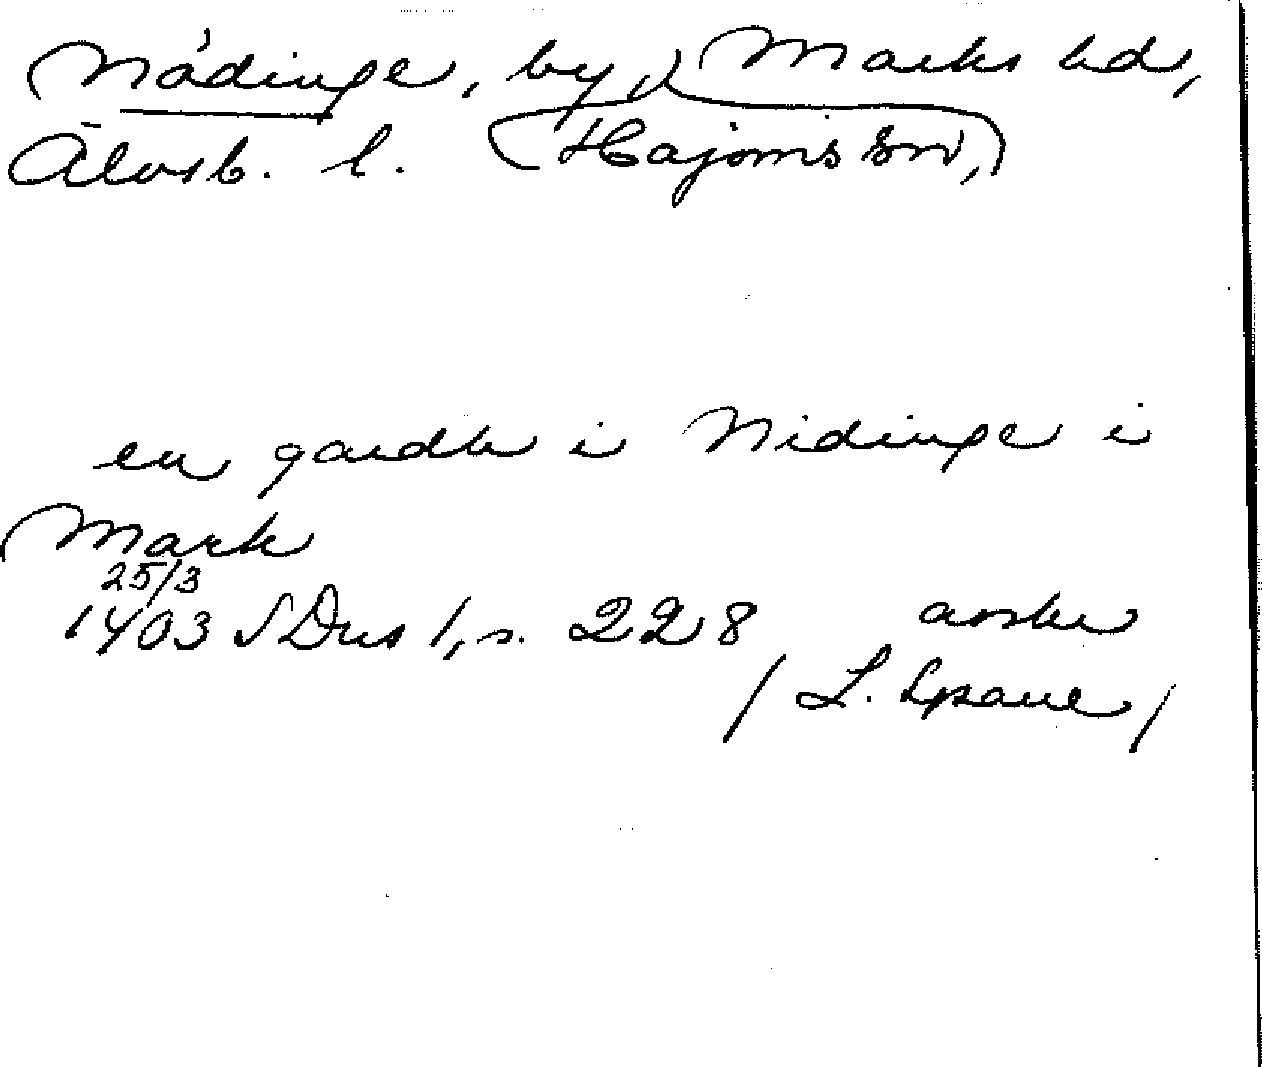 Nådinge, by, Marks hd,
Älvsb. l. (Hajoms sn,)
en gardh i Nidinge i
Mark
25/3
1403 SDns 1, s. 228 avskr
/ L. Spane /